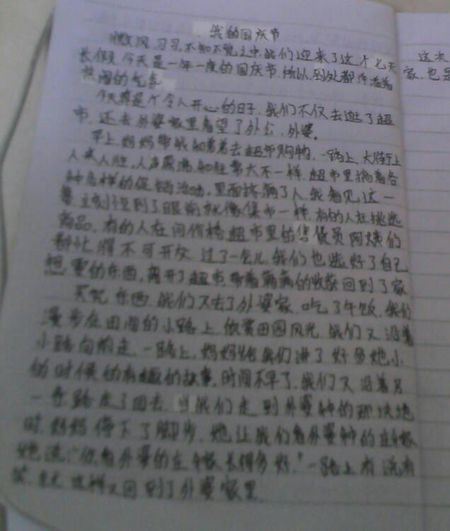 我的国庆节
微风习习,不知不觉之中我们迎来了这个七天
长假,今天是一年一度的国庆节,所以到处都洋溢着
的气氛
今天真是个令人开心的日子,我们不仅去逛了超
市,还去外婆家里看望了外公、外婆。
早上,妈妈带我和弟弟去超市购物,一路上,大街上
人来人往,人声鼎沸,和往常大不一样,超市里搞着各
种各样的促销活动,里面挤满了人,我看见这一
就像集市一样,有的人在挑选
商品,有的人在问价格,超市里的售货员阿姨们
都忙得不可开交,过了一会儿,我们也选好了自己
想要的东西,离开了超市,带着满满的收获回到了家
买完东西,我们又去了外婆家,吃了午饭,我们
漫步在田间的小路上,欣赏田园风光,我们又沿着
小路向前走,一路上,妈妈给我们讲了好多她小
的时候的有趣的故事,时间不早了,我们又沿着另
一条路走了回去,当我们走到外婆种的那块地
时,妈妈停下了脚步,她让我们看外婆种的
她说:“你看外婆的 长得多好。”一路上有说有
笑,就这样又回到了外婆家里
这次
家,也是